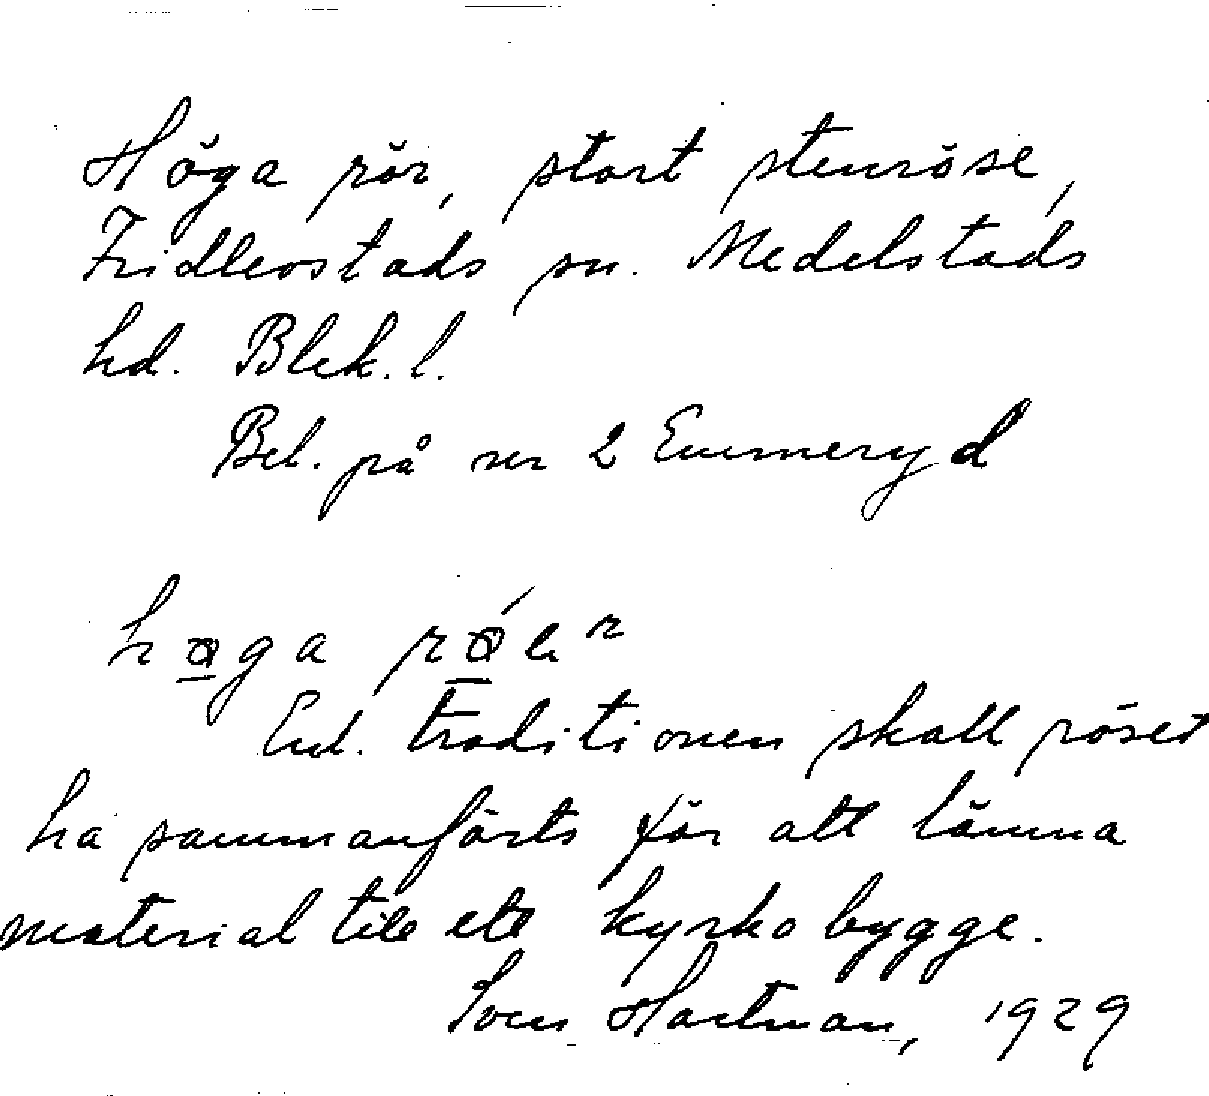 Höga rör, stort stenröse,
Fridlevstads sn. Medelstads
hd. Blek. l.
Bel. på nr 2 Emmeryd
høga
Enl. traditionen skall röset
ha sammanförts för att lämna
material till ett kyrkobygge.
Sven Hartman, 1929